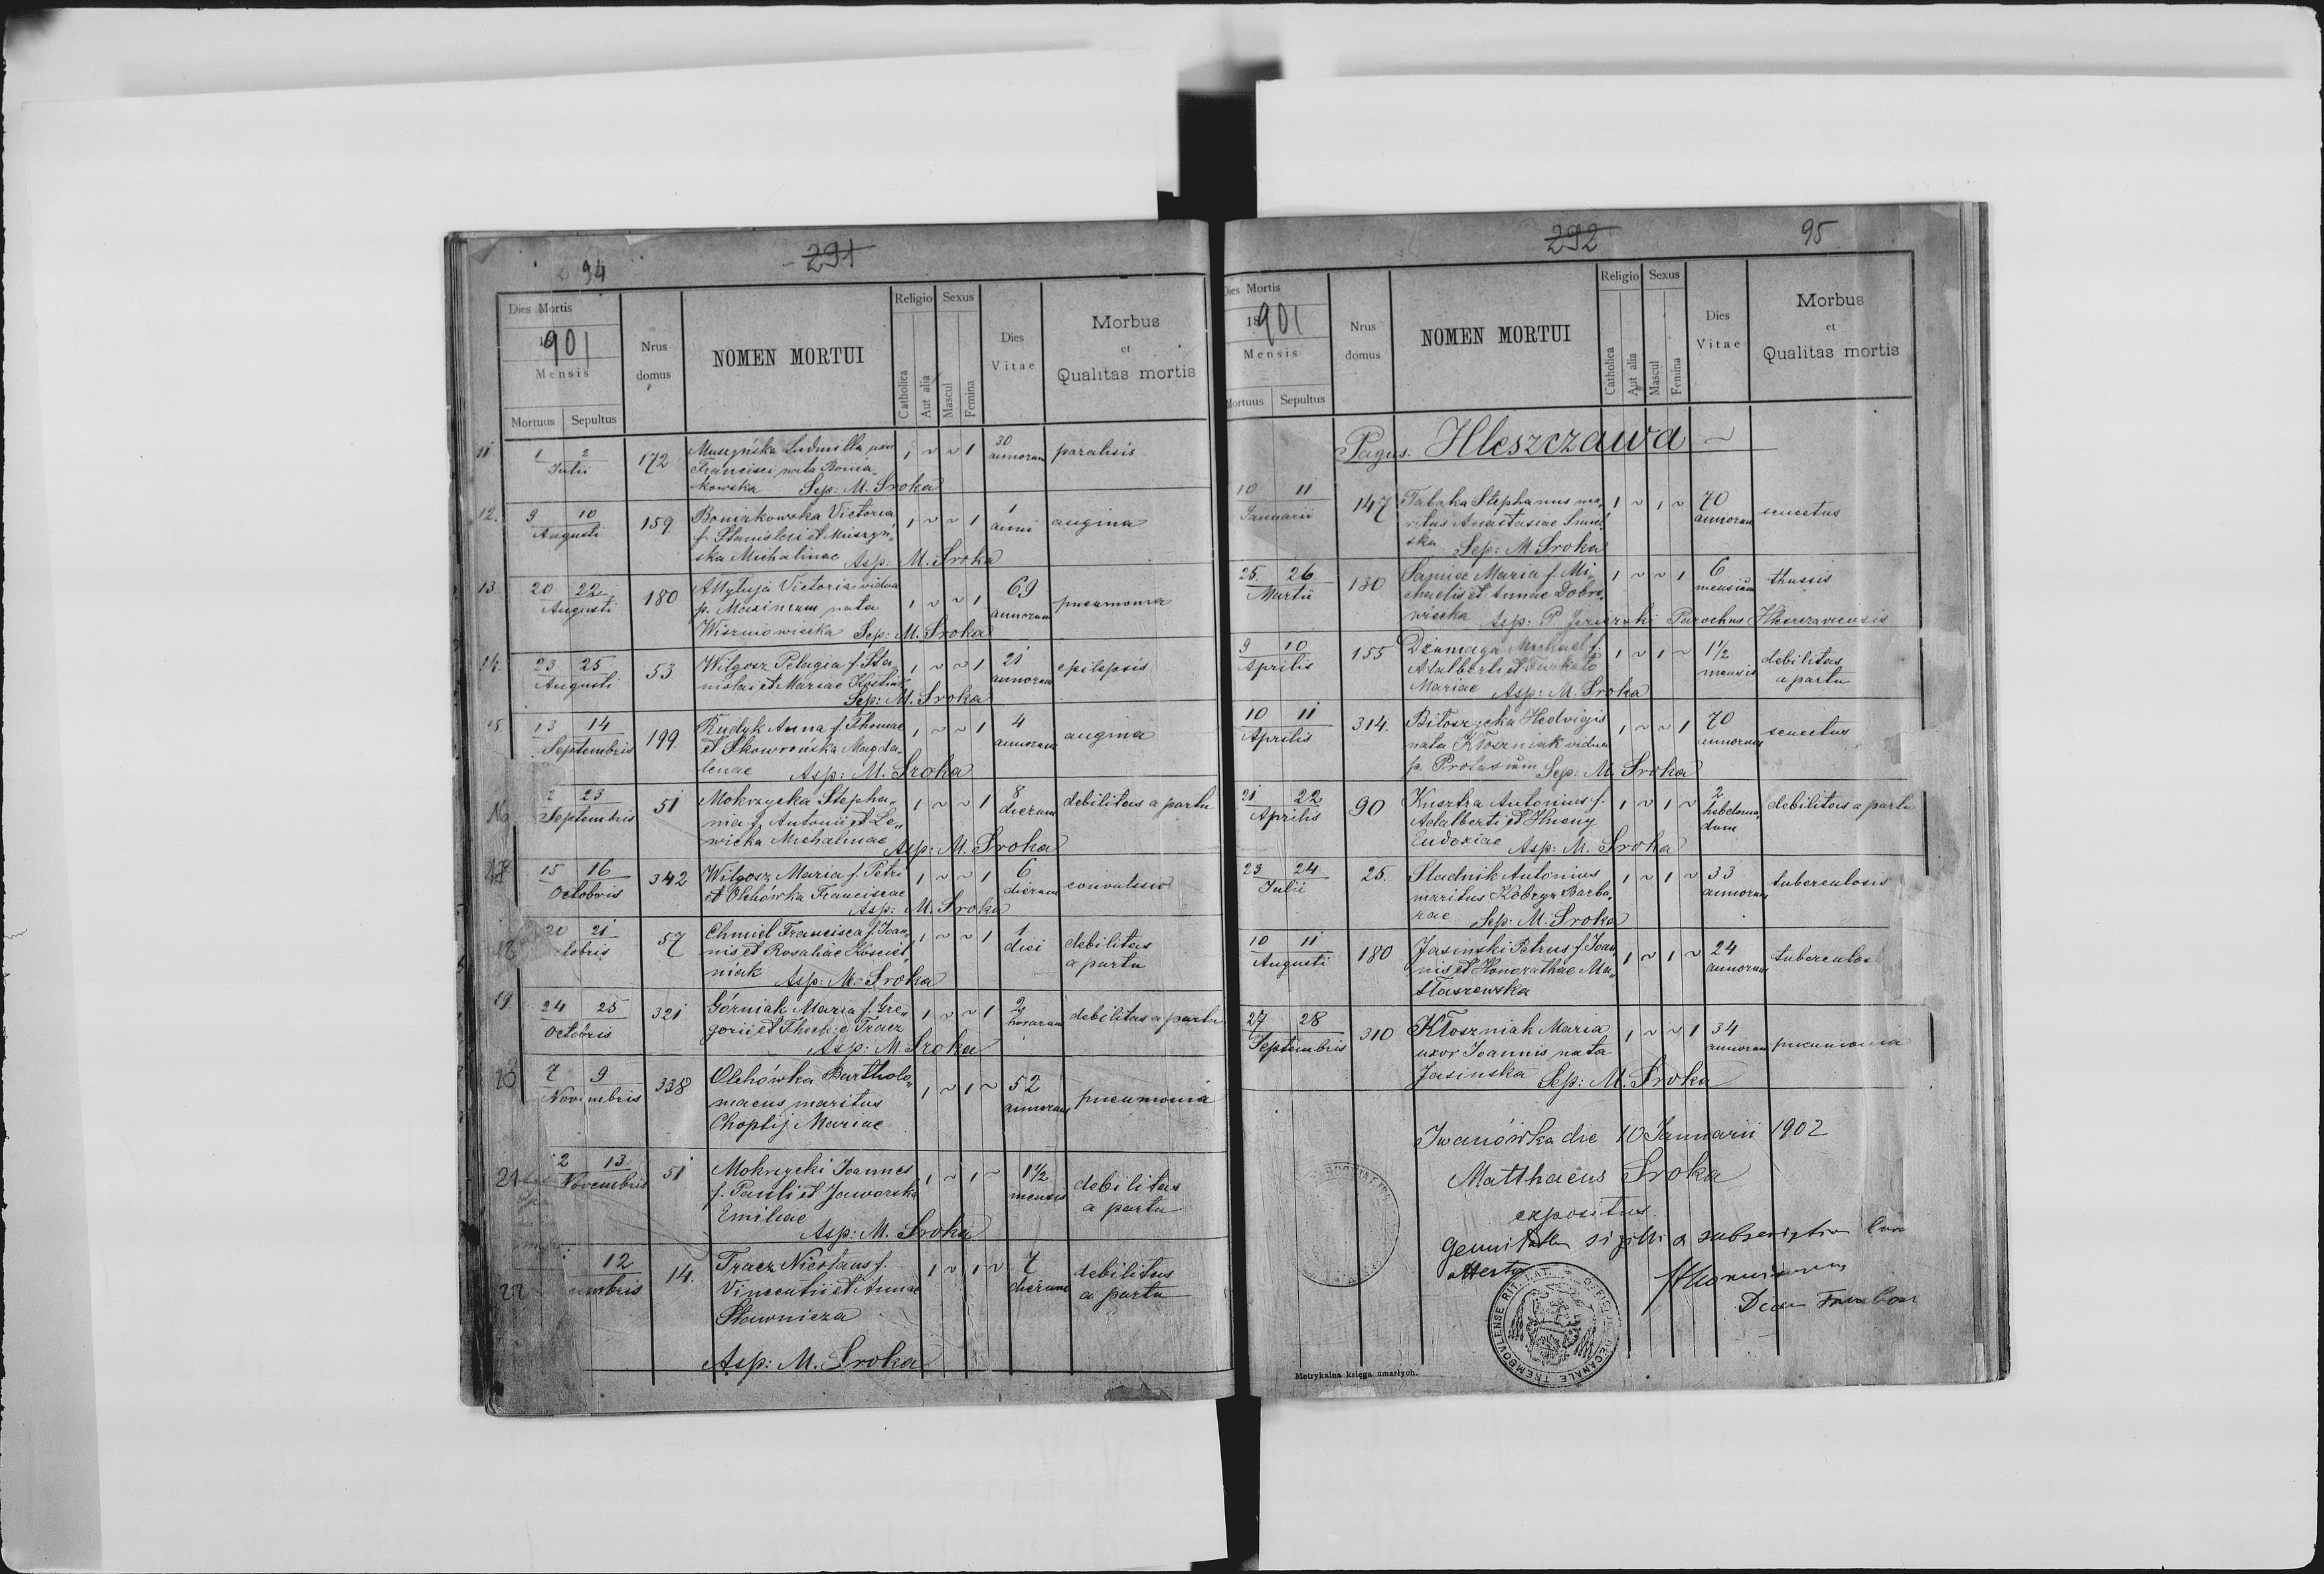 94
291
Dies Mortis
1901
Mensis
Mortuus Sepultus
Nrus domus
NOMEN MORTUI
Religio
Catholica
Aut alia
Sexus
Mascul
Femina
Dies Vitae
Morbus
et
Qualitas mortis
11 1 2 Julii 172 Muszyńska Ludmilla uxor 1 ~ ~ 1 30 annorum paralisis
Francisci nata Bonia„
kowska Sep: M. Sroka
12. 9 10 Augusti 159 Boniakowska Victoria 1 ~ ~ 1 1 anni angina
f. Stanislai et Muszyń„
ska Michalinae Asp: M. Sroka
13 20 22 Augusti 180 Victoria vidua 1 ~ ~ 1 69 annorum pneumonia
p. Maximum nata
Wiszniowiecka Sep: M. Sroka
14. 23 25 Augusti 53. Wilgosz Pelagia f. Sta„ 1 ~ ~ 1 21 annorum epilepsis
nislai et Mariae
Sep: M. Sroka
15. 13 14 Septembris 199. Rudyk Anna f. Thomae 1 ~ ~ 1 4 annorum angina
et Skowrońska Magda„
lenae Asp: M. Sroka
16 2 23 Septembris 51 Mokrzycka Stepha„ 1 ~ ~ 1 8 dierum debilitas a partu
nia f. Antonii et Le„
wicka Michalinae Asp: M. Sroka
17 15 16 Octobris 342 Wilgosz Maria f. Petri 1 ~ ~ 1 6 dierum convulsio
et Olchówka Franciscae
Asp: M. Sroka
18 20 21 tobris 57 Chmiel Francisca f. Joan„ 1 ~ ~ 1 1 diei debilitas
nis et Rosaliae Kościel„ a partu
niak Asp: M. Sroka
19. 24 25 Octobris 321 Górniak Maria f. Gre„ 1 ~ ~ 1 2 horarum debilitas a partu
gorii et Tracz
Asp: M. Sroka
20 7 9 Novembris 338 Olchówka Bartholo„ 1 ~ 1 ~ 52 annorum pneumonia
maeus maritus
Choptij Mariae
21 2 13 Novembris 51 Mokrzycki Joannes 1 ~ 1 ~ 1½ mensis debilitas
f. Pauli et Jaworska a partu
Emiliae
Asp: M. Sroka
22 12 mbris 14. Tracz Nicolaus f. 1 ~ 1 ~ 7 dierum debilitas
Vincentii et Annae a partu
Sławnicza
Asp: M. Sroka
292
95
Dies Mortis
18901
Mensis
Mortuus Sepultus
Nrus domus
NOMEN MORTUI
Religio
Catholica
Aut alia
Sexus
Mascul
Femina
Dies Vitae
Morbus
et
Qualitas mortis
Pagus. Hleszczawa ~
10 11 Januarii 147 Tabaka Stephanus ma„ 1 ~ 1 ~ 70 annorum senectus
ritus Anastasiae
ska Sep: M. Sroka
25. 26 Martii 180 Maria f. Mi„ 1 ~ ~ 1 6 mensium thussis
chaelis et Annae Dobro„
wiecka Asp: P. Parochus Hleszczaviensis
9 10 Aprilis 155 Dżumaga Michael f. 1 ~ 1 ~ 1½ mensis debilitas
Adalberti et Furkało a partu
Mariae Asp: M. Sroka
10 11 Aprilis 314. Biłoszycka Hedvigis 1 ~ ~ 1 70 annorum senectus
nata Kłoszniak vidua
p. Protasium Sep: M. Sroka
21 22 Aprilis 90 Kusztra Antonius f. 1 ~ 1 ~ 2 hebdoma„ debilitas a partu
Adalberti et Hneny dum
Eudoxiae Asp: M. Sroka
23 24 Julii 25. Stadnik Antonius 1 ~ 1 ~ 33 annorum tuberculosis
maritus Kobryn Barba„
rae Sep: M. Sroka
10 11 Augusti 180 Jasinski Petrus f. Joan„ 1 ~ 1 ~ 24 annorum tuberculos
nis et Honorathae Ma„
ttaszewska
27 28 Septembris 310 Kłoszniak Maria 1 ~ ~ 1 34 annorum pneumonia
uxor Joannis nata
Jasinska Sep: M. Sroka
Iwanówka die 10 Januarii 1902
Matthaeus Sroka
expositus.
sigilli a subscription
attestor
OFFICIUM DECANALE TREMBOVLENSE RIT. LAT.
Metrykalna księga umarłych.